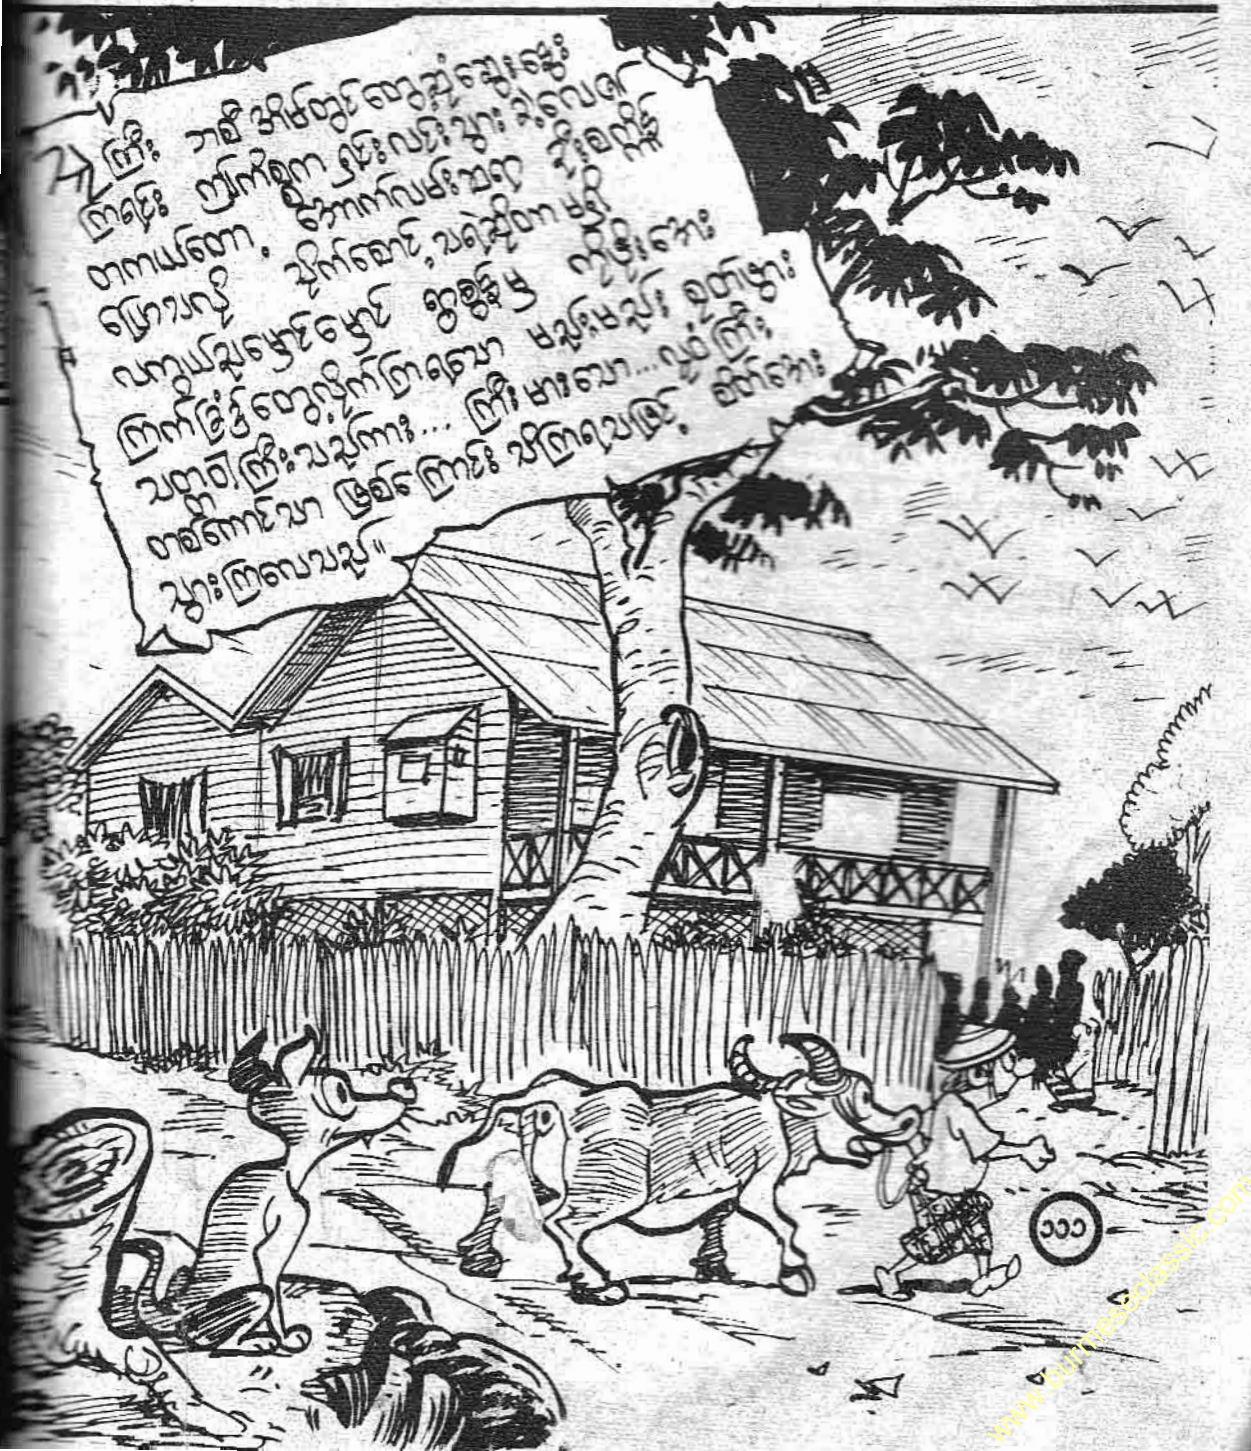 ကြီး ဘစီ အိမ်တွင်တွေ့ဆုံဆွေးနွေး
ကြရင်း ကြက်စွက ရှင်းလင်းသွား ခဲ့လေ၏
တကယ်တော့ အောက်လမ်းဆရာ ဦးစက္ကိန္ဒ
ပြောသလို သိုက်စောင့်သရဲဆိုတာ မရှိ
လကွယ်ညမှောင်မှောင် ရွာစွန်မှ ကိုဖိုးအေး
ကြက်ခြံ၌တွေ့လိုက်ကြရသော မည်းမည်း ရုတ်ဖွား
သတ္တဝါကြီးသည်ကား... ကြီးမားသော... လူဝံကြီး
တစ်ကောင်သာ ဖြစ်ကြောင်း သိကြရသဖြင့် စိတ်အေး
သွားကြလေသည်။
၁၁၁
www.burmeseclassic.com